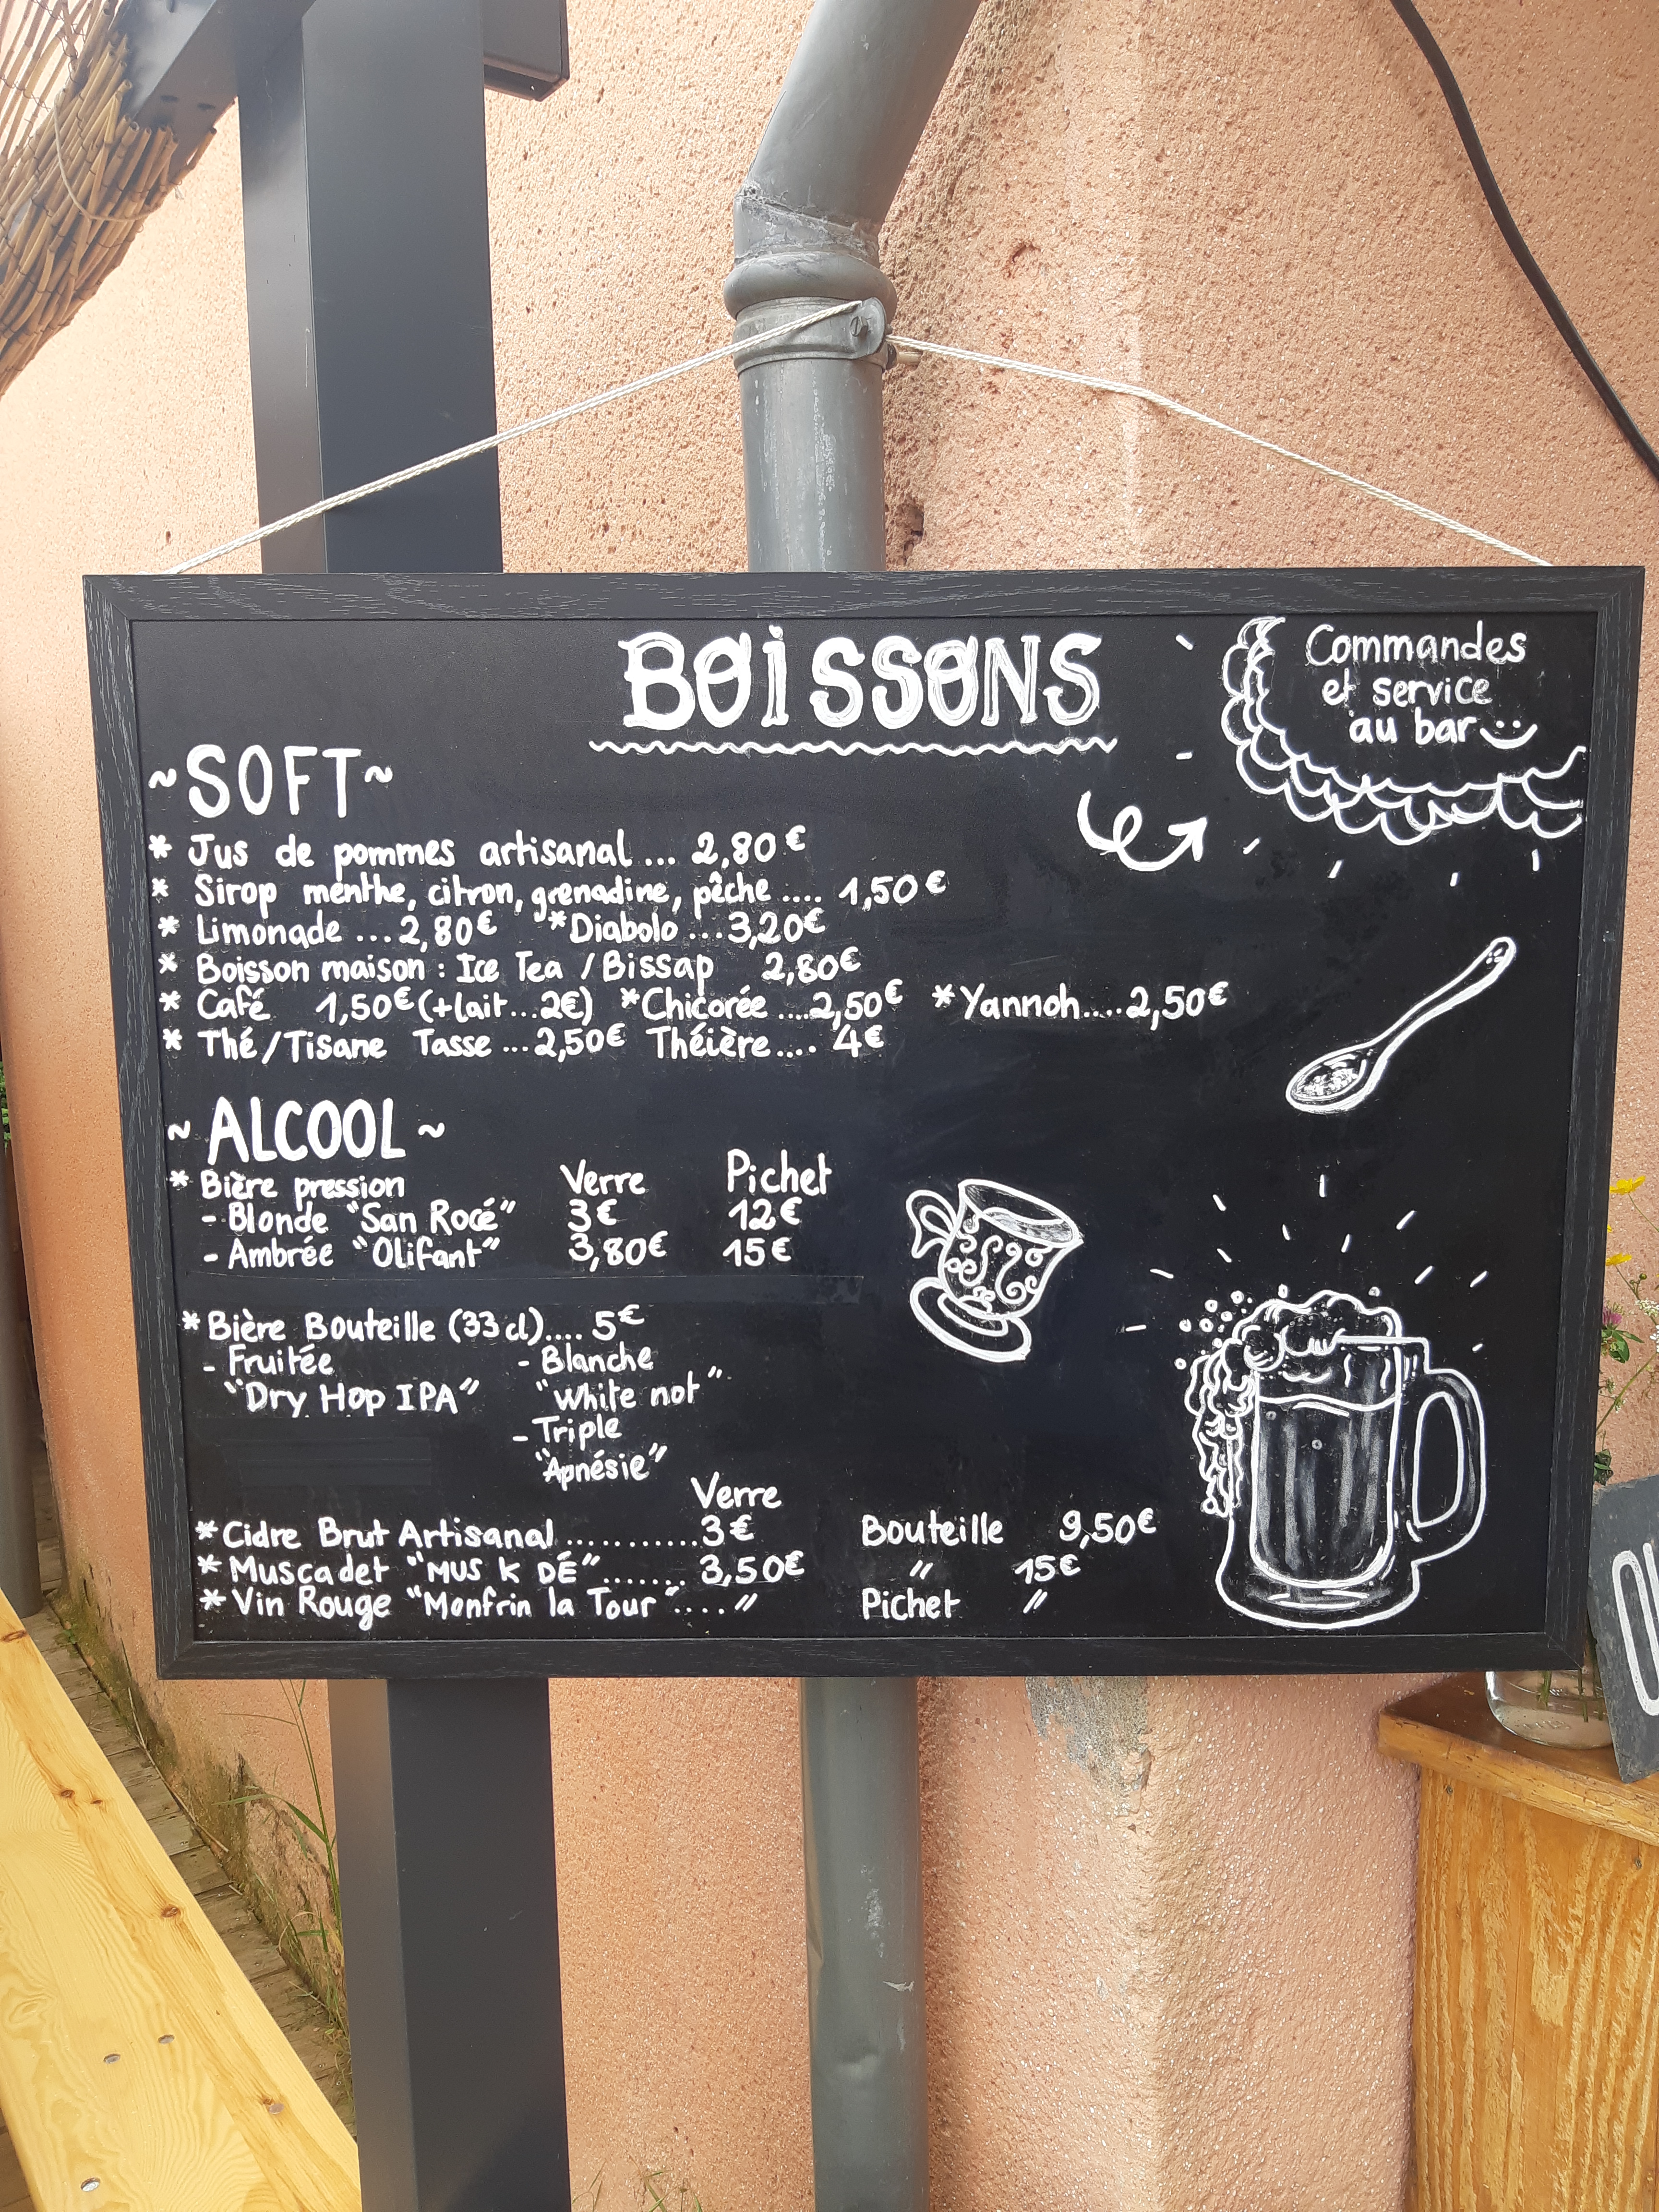 BOISSONS
Commandes
et service
au bar
~SOFT~
* Jus de pommes artisanal ... 2,80€
* Sirop menthe, citron, grenadine, pêche .... 1,50€
* Limonade ... 2,80€ *Diabolo ... 3,20€
* Boisson maison : Ice Tea / Bissap 2,80€
* Café 1,50€ (+lait...2€) *Chicorée ....2,50€ *Yannoh.....2,50€
* Thé/Tisane Tasse ... 2,50€ Théière.... 4€
~ ALCOOL ~
* Bière pression Verre Pichet
- Blonde "San Rocé" 3€ 12€
- Ambrée "Olifant" 3,80€ 15€
* Bière Bouteille (33cl).... 5€
- Fruitée - Blanche
"Dry Hop IPA" "White not"
- Triple
"Apnésie"
Verre
* Cidre Brut Artisanal...........3€ Bouteille 9,50€
* Muscadet "MUS K DÉ"....... 3,50€ " 15€
* Vin Rouge "Monfrin la Tour".... " Pichet "